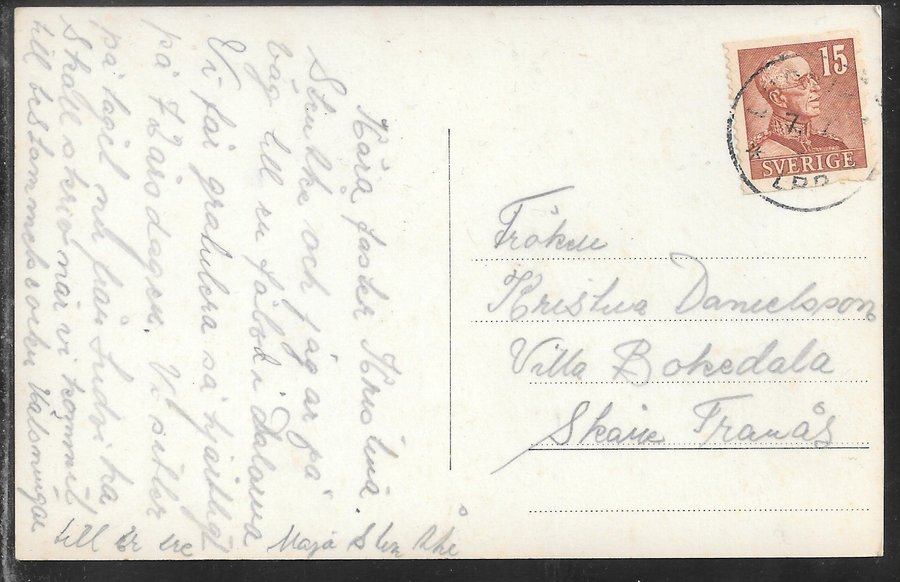 Kära faster Kristina.
Sten Åke och jag är på
väg till en fäbod i Dalarna
Vi får gratulera så hjärtligt
på 7 årsdagen. Vi sitter
på tåget nu från Ludvika
Skall skriva när vi kommit
till bestämmelseorten Hälsningar
till Er tre Maja Sten Åke
15
SVERIGE
Fröken
Kristina Danielsson
Villa Bokedala
Skåne Tranås